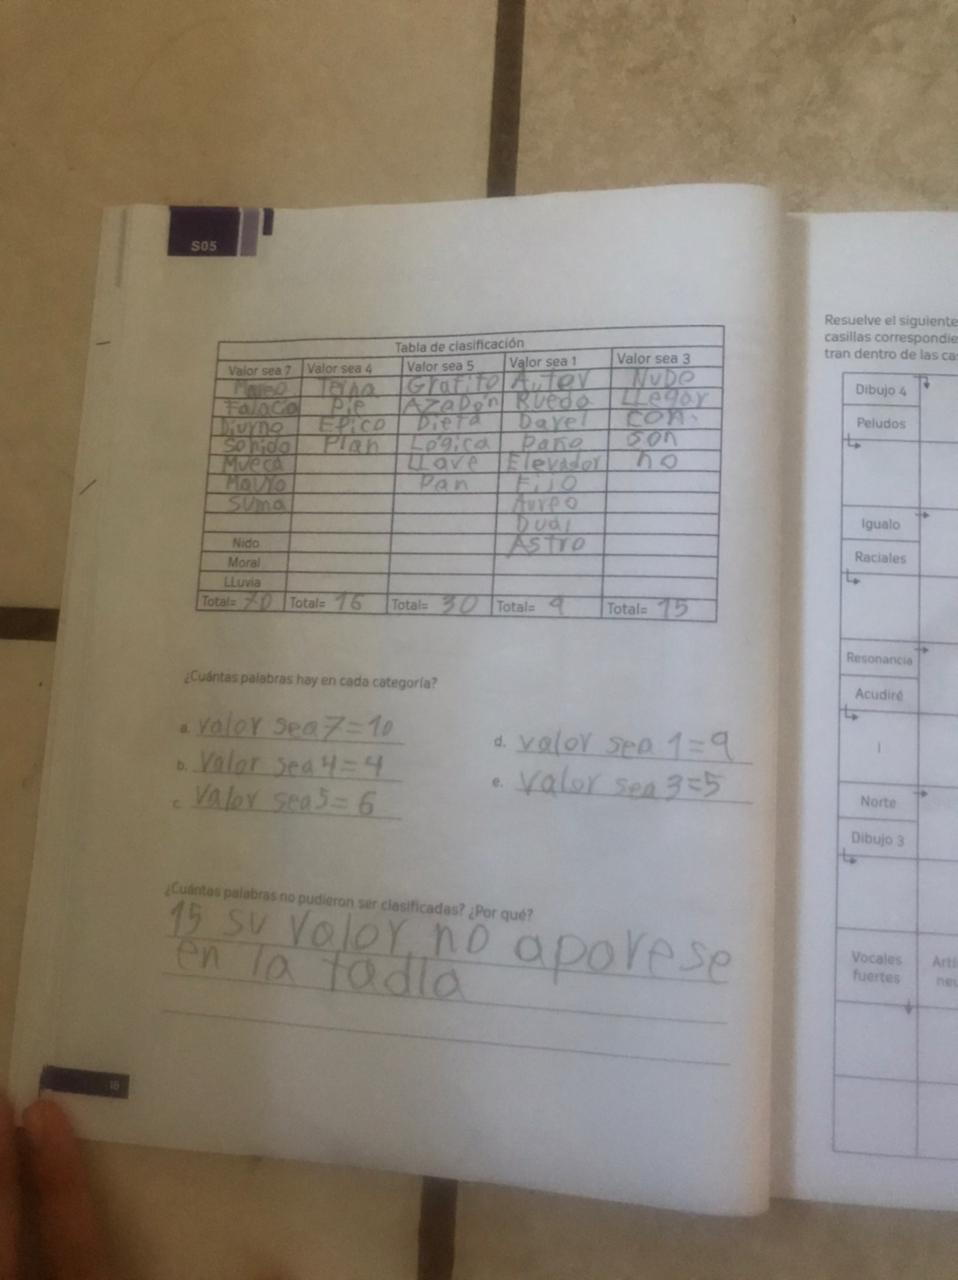 S05
Tabla de clasificación
Valor sea 7 Valor sea 4 Valor sea 5 Valor sea 1 Valor sea 3
Terna Grafito Autor Nudo
Falacia Pie Azadón Rueda LLegar
Diurno Epico Dieta con.
Sonido Plan Lógica Paño son
Mueca LLave Elevador no
Mauro Pan Fijo
Suma Aureo
Dual
Nido Astro
Moral
LLuvia
Total= 70 Total= 16 Total= 30 Total= 9 Total= 15
¿Cuántas palabras hay en cada categoría?
a. valor sea 7=10
b. Valor sea 4=4
c. Valor sea 5=6
d. valor sea 1=9
e. valor sea 3=5
¿Cuántas palabras no pudieron ser clasificadas? ¿Por qué?
15 su valor no aporese
en la tadla
18
Resuelve el siguiente
casillas correspondie
tran dentro de las ca
Dibujo 4
Peludos
Igualo
Raciales
Resonancia
Acudiré
Norte
Dibujo 3
Vocales
fuertes